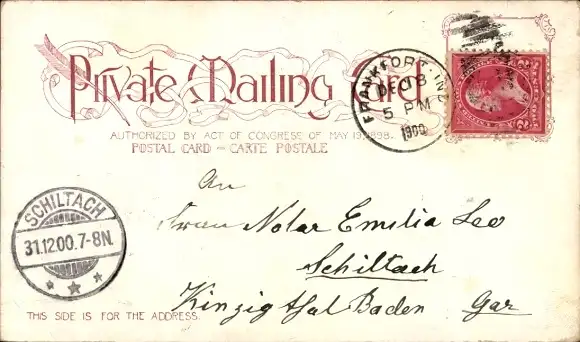 Private Mailing Card
FRANKFORT, IND.
DEC 18
5 PM
1900
AUTHORIZED BY ACT OF CONGRESS OF MAY 19, 1898.
POSTAL CARD – CARTE POSTALE
An
Frau Notar Emilia Leo
Schiltach
Kinzigthal Baden Ger
SCHILTACH
31.12.00.7-8N.
THIS SIDE IS FOR THE ADDRESS.